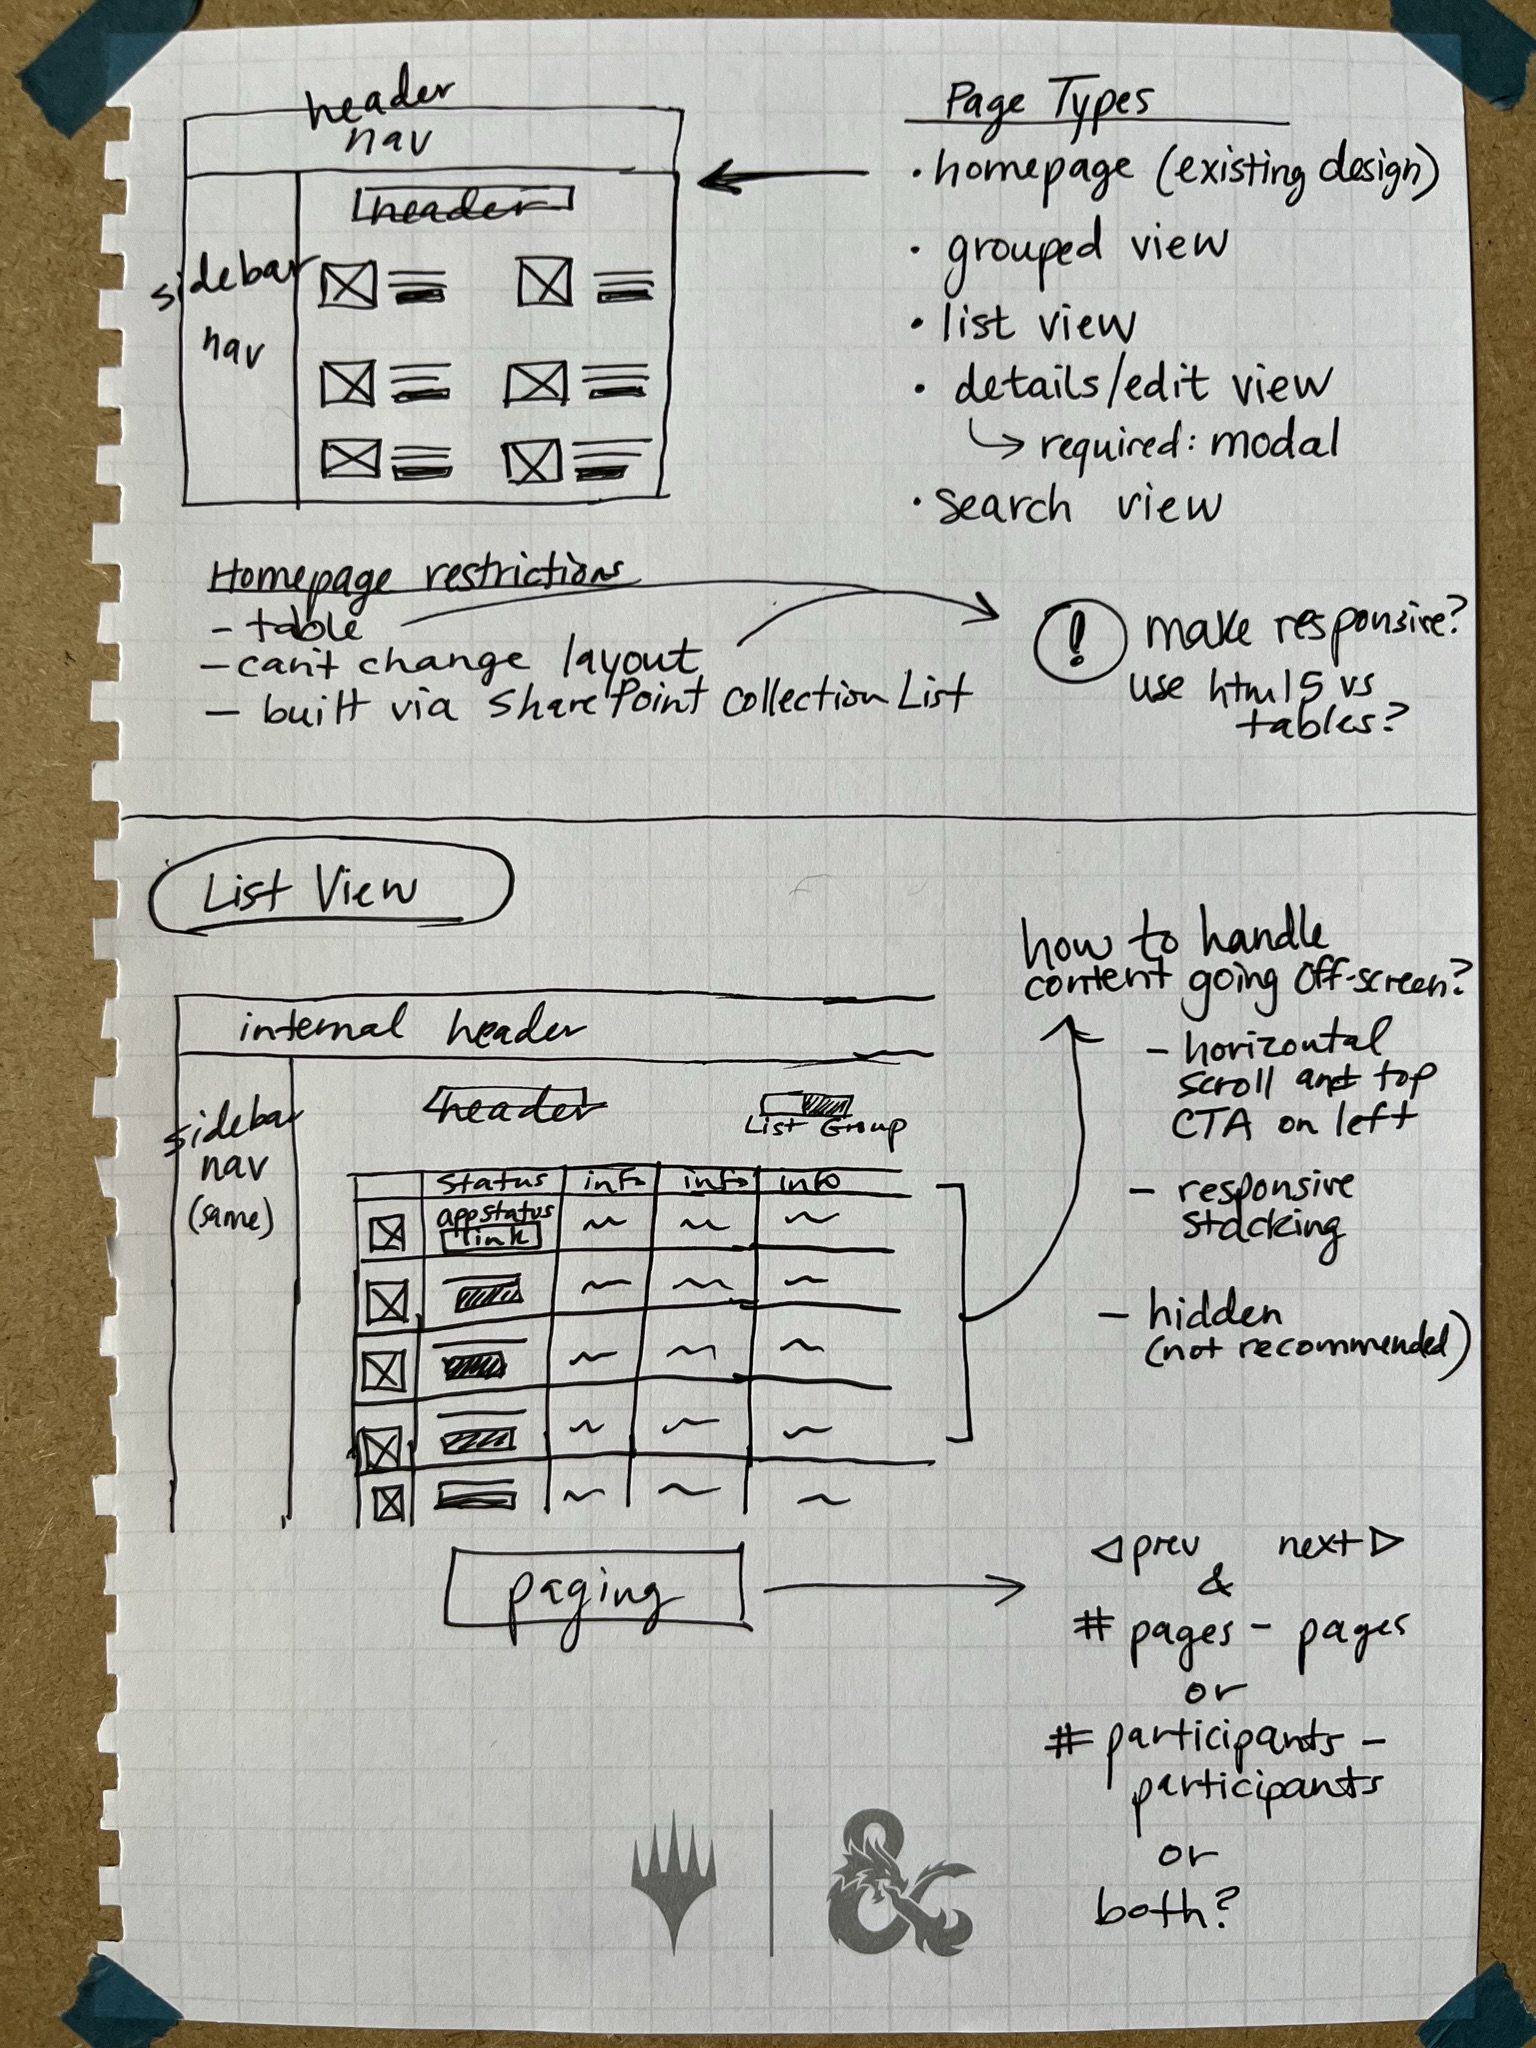 header
nav
header
sidebar
nav
Page Types
· homepage (existing design)
· grouped view
· list view
· details/edit view
↳ required: modal
· search view
Homepage restrictions
- table
- can't change layout
- built via SharePoint Collection List
! make responsive?
use html5 vs
tables?
List View
internal header
sidebar
nav
(same)
header
List Group
status info info info
app status
link
how to handle
content going off-screen?
- horizontal
scroll and top
CTA on left
- responsive
stacking
- hidden
(not recommended)
paging
◁ prev next ▷
&
# pages - pages
or
# participants -
participants
or
both?